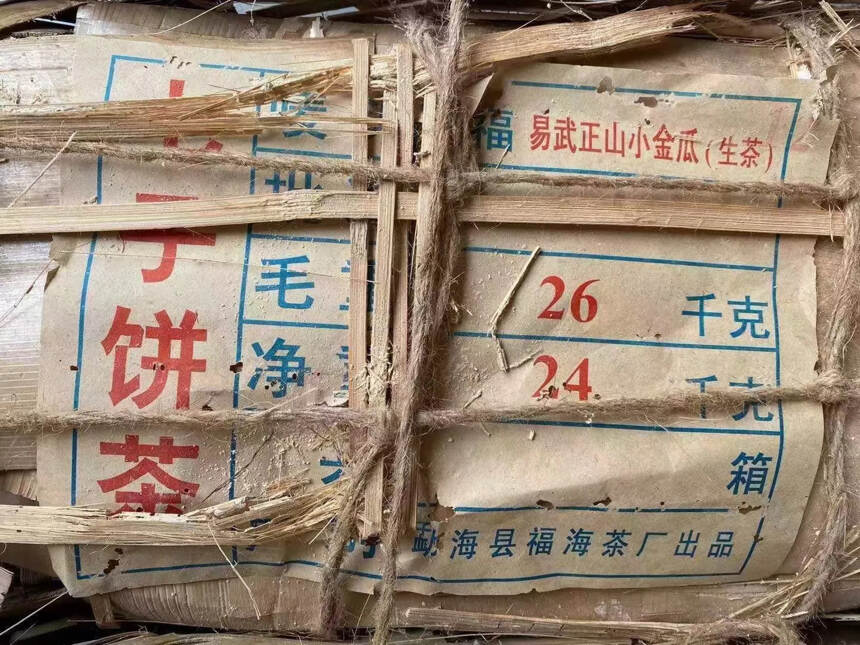 子饼茶
唛 福 易武正山小金瓜(生茶)
批
毛重 26 千克
净重 24 千克
箱
勐海县福海茶厂出品